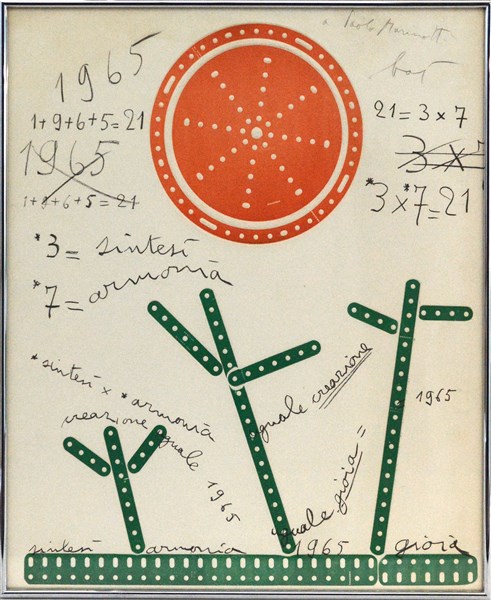 a Paolo Marinotti
1965
1+9+6+5=21
1965
1+9+6+5=21
21=3x7
3x
*3x*7=21
*3= sintesi
*7= armonia
*sintesi x *armonia
creazione uguale
1965
uguale creazione
uguale gioia =
1965
sintesi armonia 1965 gioia